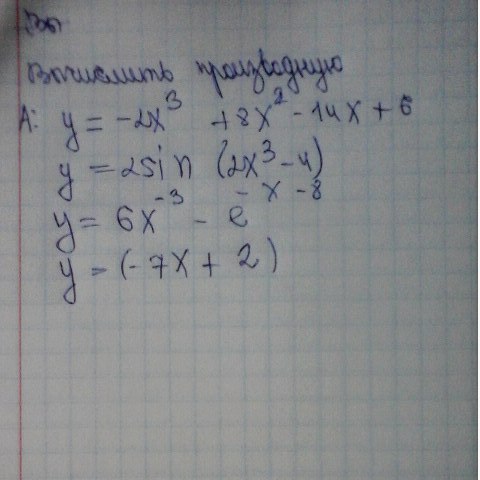 Вычислить производную
А: y = -2x³ + 8x² - 14x + 6
y = 2sin (2x³ - 4)
y = 6x⁻³ - e⁻ˣ⁻⁸
y = (-7x + 2)